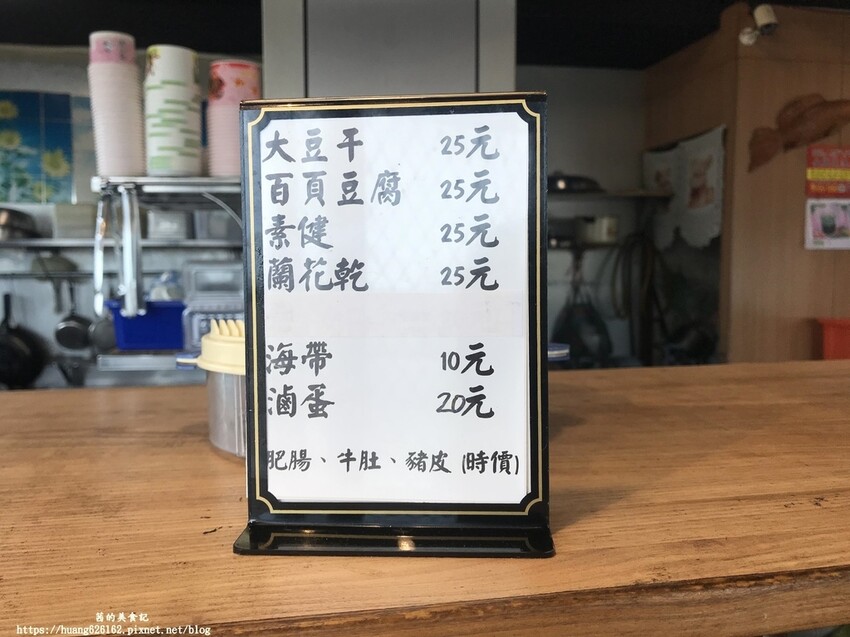 大豆干 25元
百頁豆腐 25元
素健 25元
蘭花乾 25元
海帶 10元
滷蛋 20元
肥腸、牛肚、豬皮(時價)
茜的美食記
https://huang626162.pixnet.net/blog